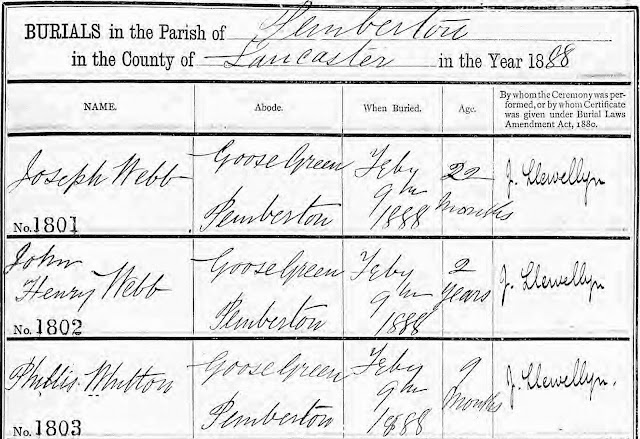 BURIALS in the Parish of Pemberton
in the County of Lancaster in the Year 1888
NAME. Abode. When Buried. Age. By whom the Ceremony was per-
formed, or by whom Certificate
was given under Burial Laws
Amendment Act, 1880.
Joseph Webb
No. 1801
Goose Green
Pemberton
Feby
9th
1888
22
Months
J. Llewellyn
John
Henry Webb
No. 1802
Goose Green
Pemberton
Feby
9th
1888
2
Years
J. Llewellyn
Phillis Mutton
No. 1803
Goose Green
Pemberton
Feby
9th
1888
9
Months
J. Llewellyn.